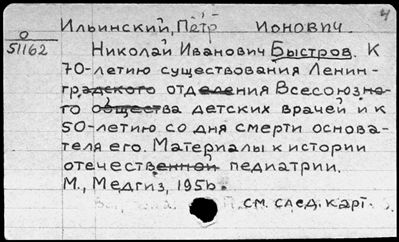 4
Ильинский, Пётр Ионович.
О
51162
Николай Иванович Быстров. К
70-летию существования Ленин-
градского отделения Всесоюзно-
го общества детских врачей и к
50-летию со дня смерти основа-
теля его. Материалы к истории
отечественной педиатрии.
М., Медгиз, 1956.
см. след. карт.